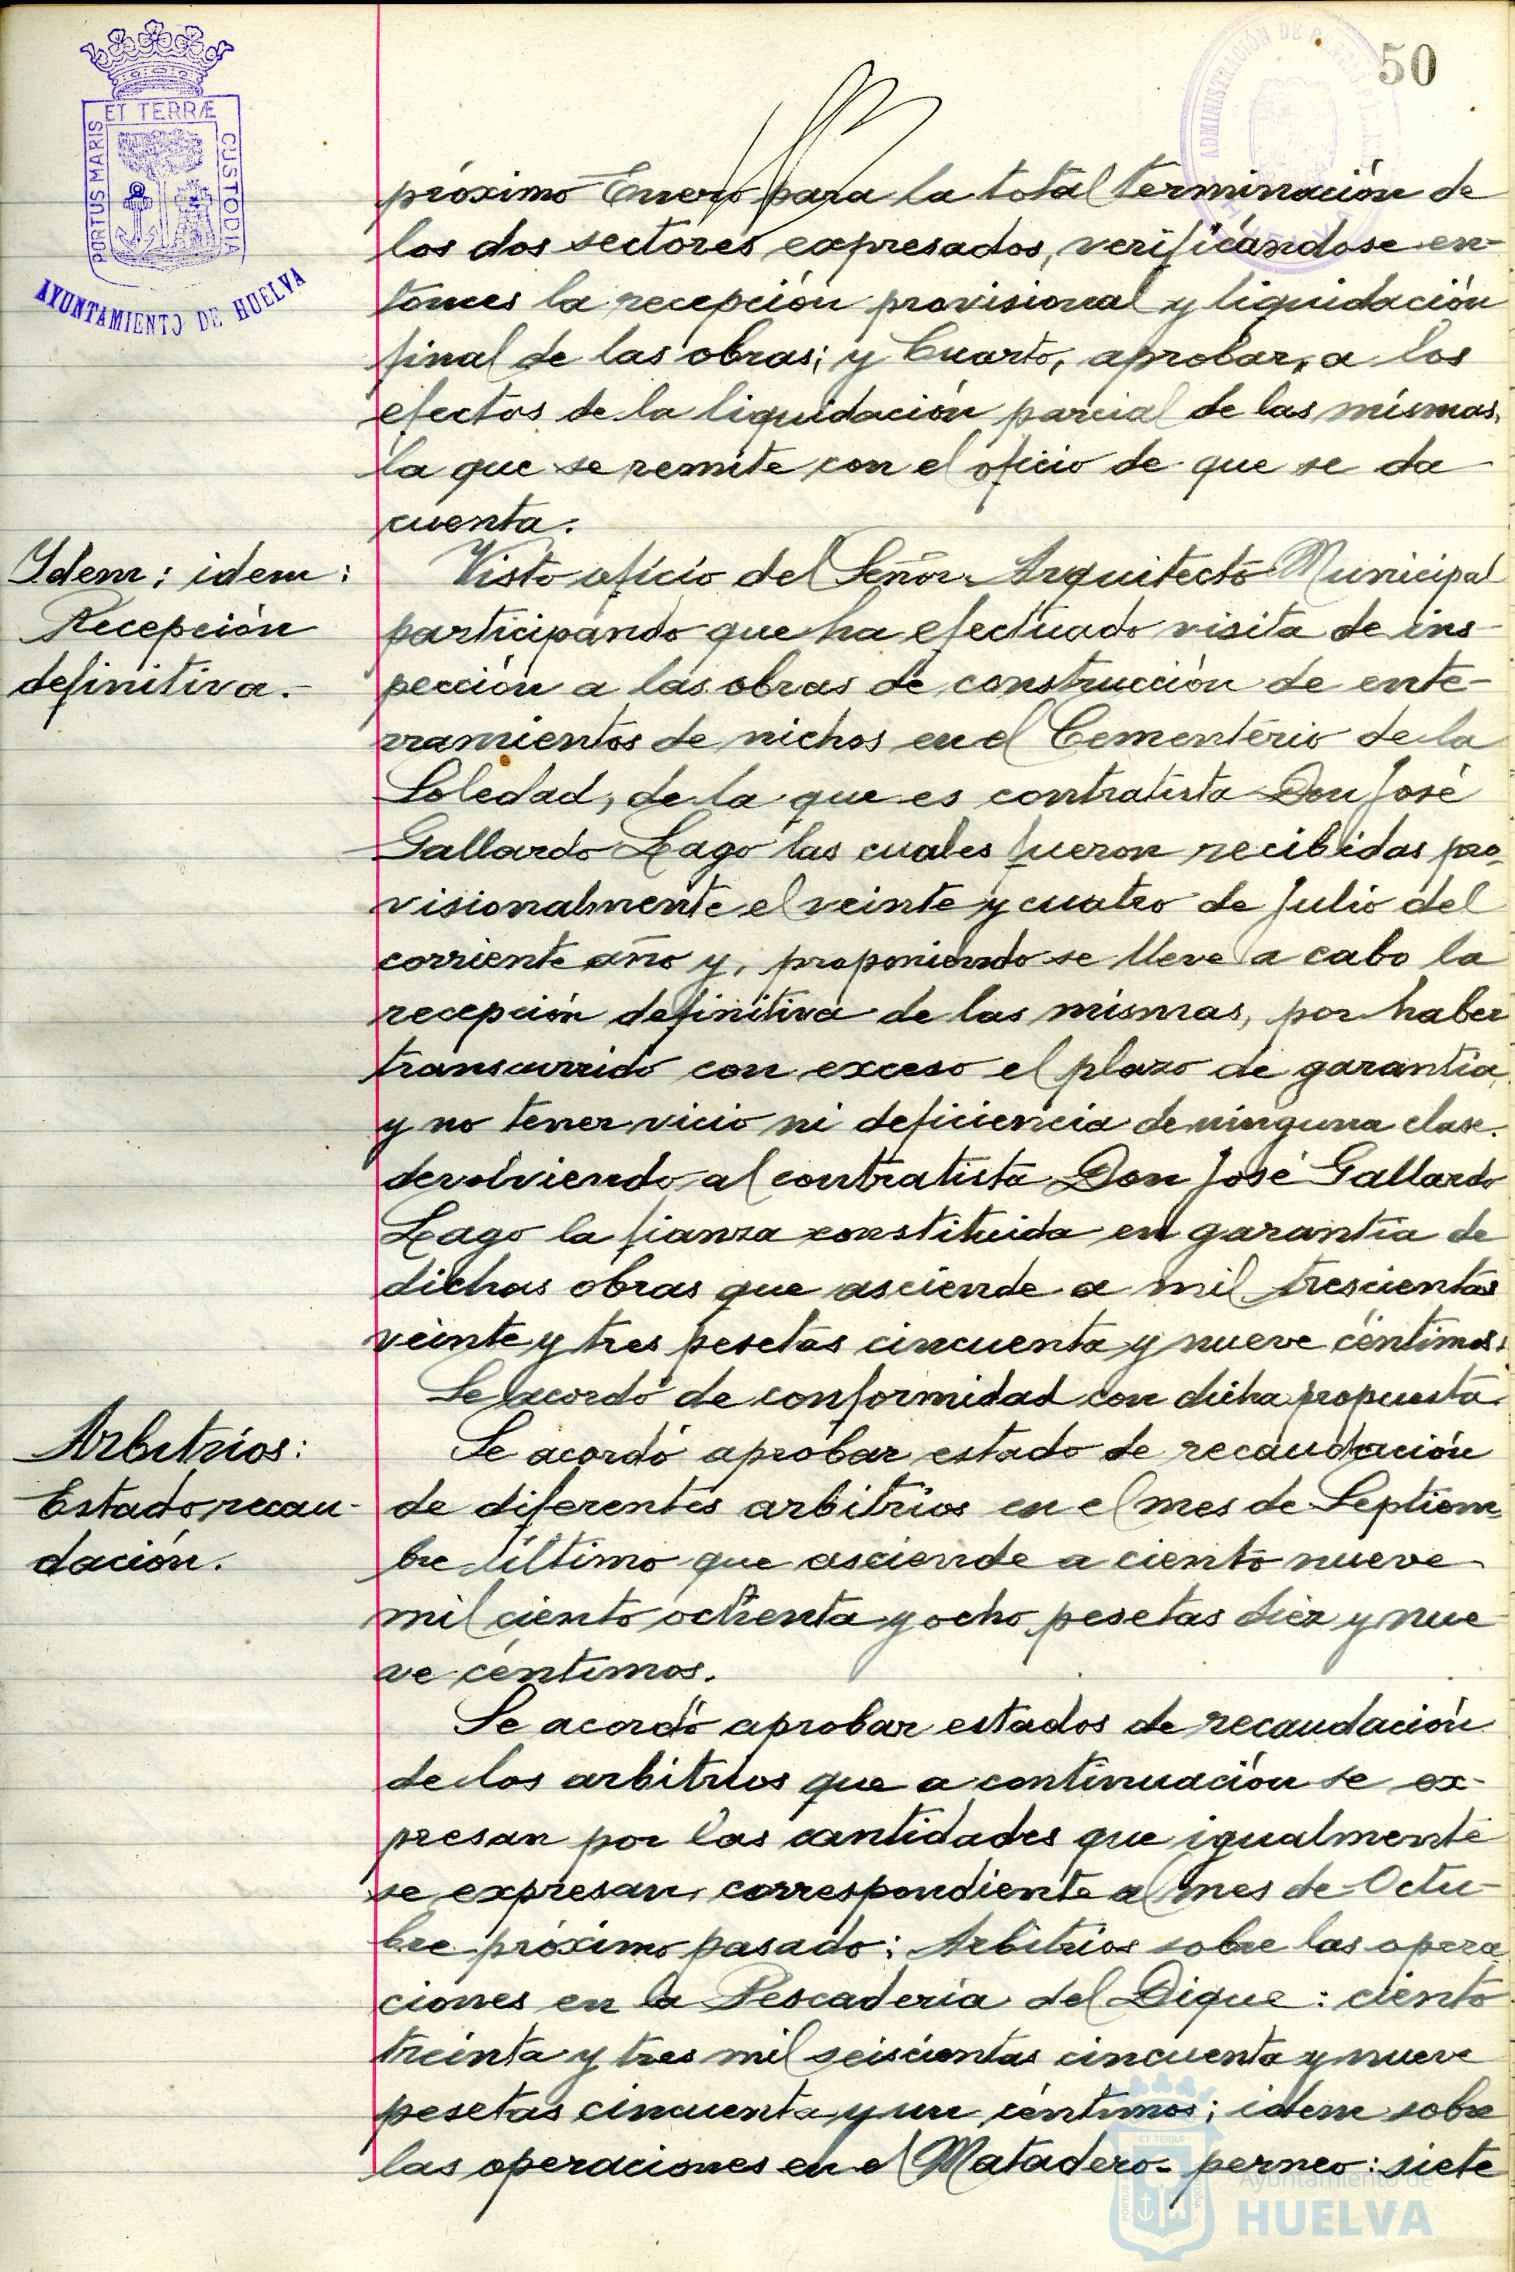 50
ET TERRÆ
PORTUS MARIS
CUSTODIA
AYUNTAMIENTO DE HUELVA
ADMINISTRACIÓN DE
próximo Enero para la total terminación de
los dos sectores expresados, verificándose en-
tonces la recepción provisional y liquidación
final de las obras; y Cuarto, aprobar, a los
efectos de la liquidación parcial de las mismas,
la que se remite con el oficio de que se da
cuenta.
Idem: idem:
Recepción
definitiva.-
Visto oficio del Señor Arquitecto Municipal
participando que ha efectuado visita de ins-
pección a las obras de construcción de ente-
rramientos de nichos en el Cementerio de la
Soledad, de la que es contratista Don José
Gallardo Lago las cuales fueron recibidas pro-
visionalmente el veinte y cuatro de Julio del
corriente año y, proponiendo se lleve a cabo la
recepción definitiva de las mismas, por haber
transcurrido con exceso el plazo de garantía
y no tener vicio ni deficiencia de ninguna clase.
devolviendo al contratista Don José Gallardo
Lago la fianza constituida en garantía de
dichas obras que asciende a mil trescientas
veinte y tres pesetas cincuenta y nueve céntimos.
Se acordó de conformidad con dicha propuesta.
Arbitrios:
Estado recau-
dación.
Se acordó aprobar estado de recaudación
de diferentes arbitrios en el mes de Septiem-
bre último que asciende a ciento nueve
mil ciento ochenta y ocho pesetas diez y nue
ve céntimos.
Se acordó aprobar estados de recaudación
de los arbitrios que a continuación se ex-
presan por las cantidades que igualmente
se expresan, correspondiente al mes de Octu-
bre próximo pasado: Arbitrios sobre las opera
ciones en la Pescadería del Dique: ciento
treinta y tres mil seiscientas cincuenta y nueve
pesetas cincuenta y un céntimos; idem sobre
las operaciones en el Matadero- perneo: siete
Ayuntamiento de
HUELVA